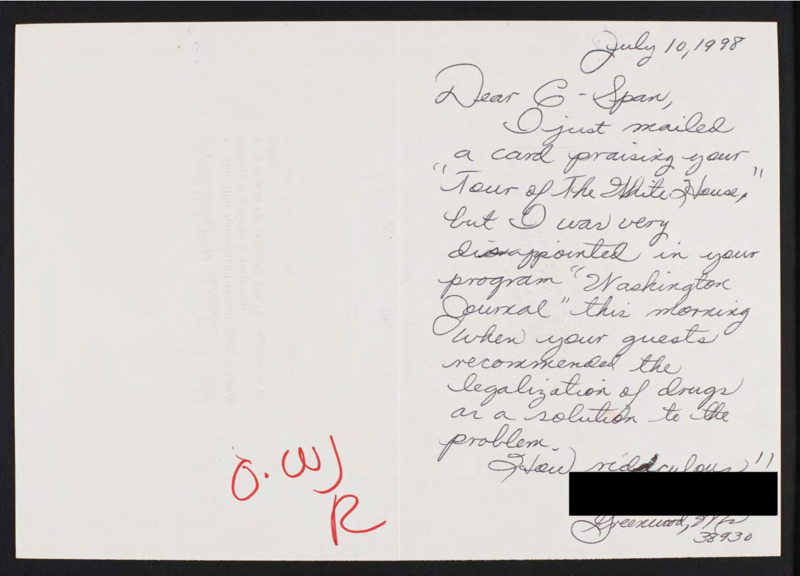 July 10, 1998
Dear C-Span,
I just mailed
a card praising your
"Tour of The White House,"
but I was very
disappointed in your
program "Washington
Journal" this morning
when your guests
recommended the
legalization of drugs
as a solution to the
problem.
How ridiculous!!
Greenwood, Ms
38930
O. WJ
R